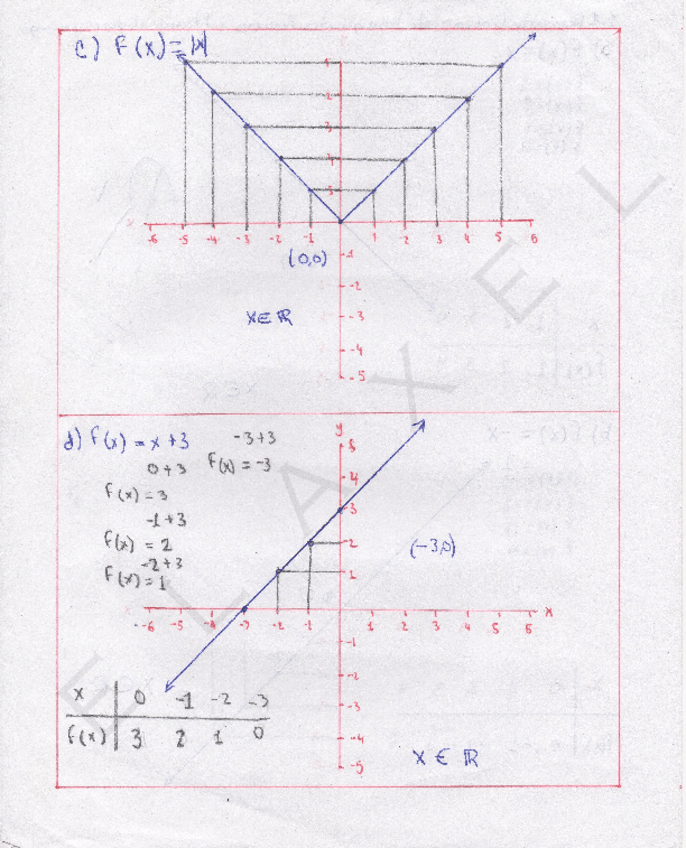 c) F(x)=|x|
-6 -5 -4 -3 -2 -1 1 2 3 4 5 6
(0,0)
-1
-2
x∈ℝ
-3
-4
-5
d) f(x) = x+3
-3+3
0+3
f(x) = -3
f(x) = 3
-1+3
f(x) = 2
-2+3
f(x) = 1
y
5
4
3
2
(-3,0)
1
-6 -5 -4 -3 -2 -1 1 2 3 4 5 6 x
-1
-2
-3
-4
-5
x 0 -1 -2 -3
f(x) 3 2 1 0
x ∈ ℝ